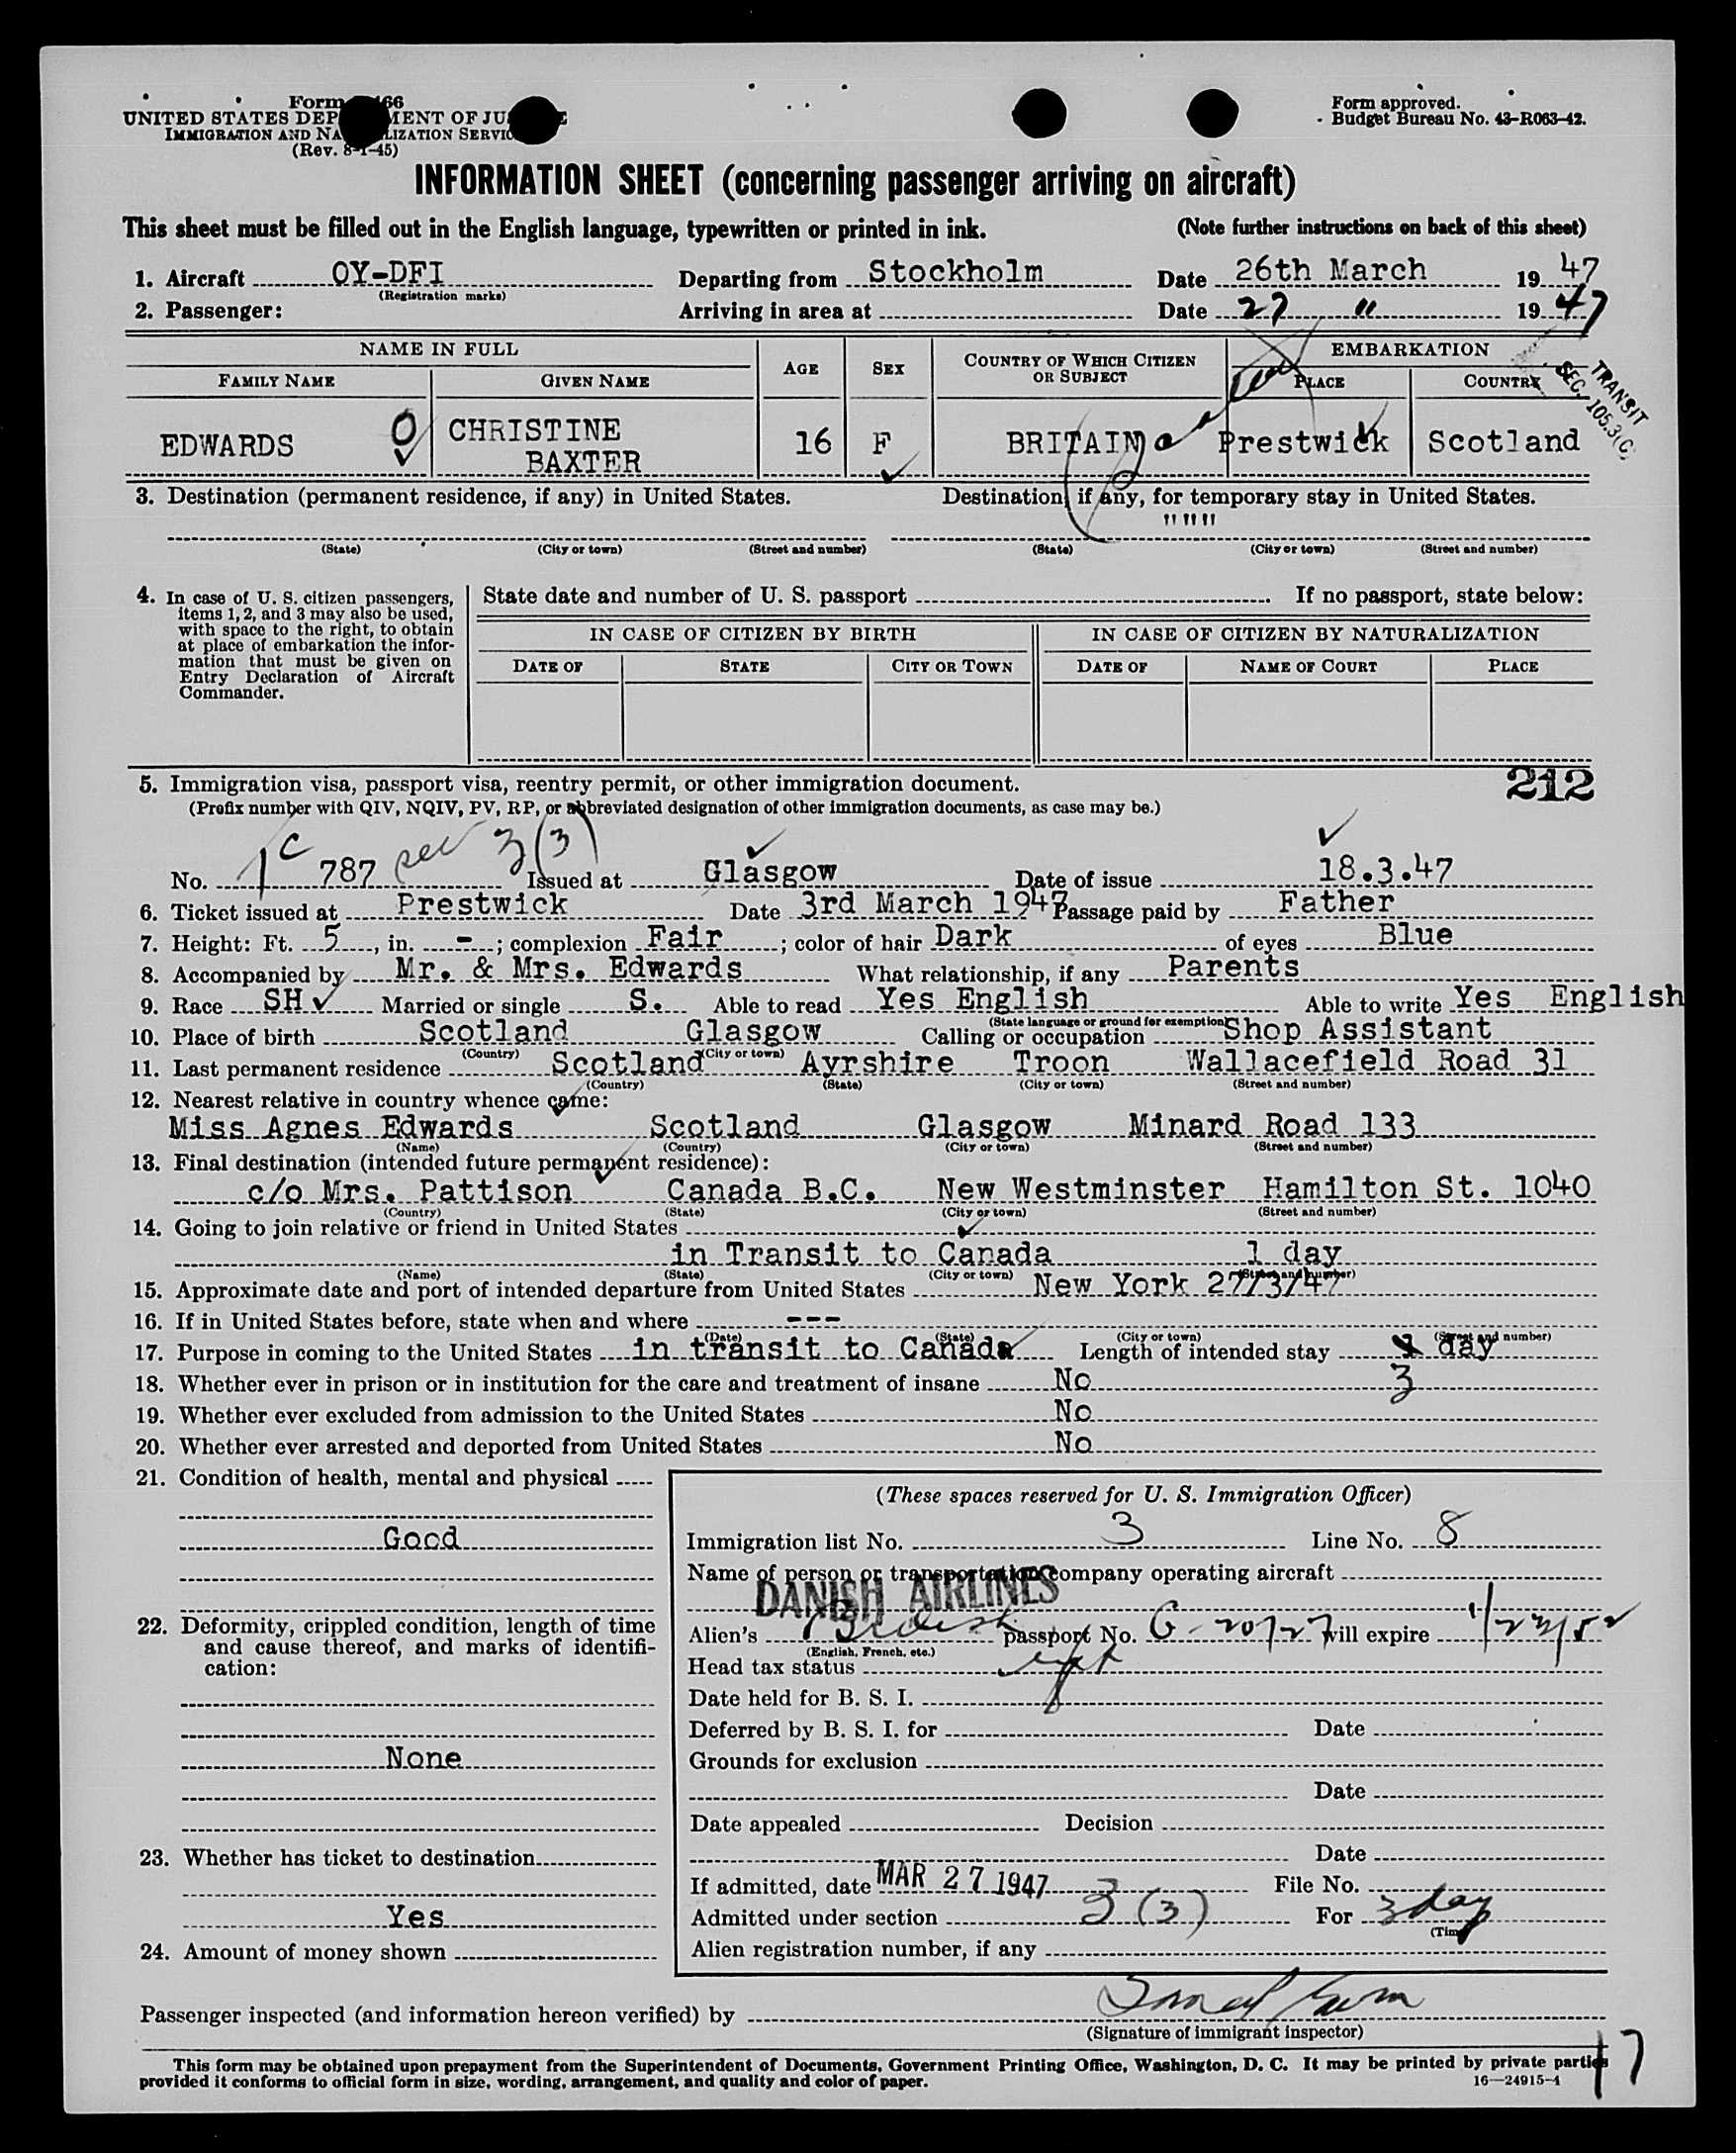 Form 466
UNITED STATES DEP MENT OF JU E
IMMIGRATION AND NA LIZATION SERVIC
(Rev. 8-1-45)
Form approved.
Budget Bureau No. 43-R063-42.
INFORMATION SHEET (concerning passenger arriving on aircraft)
This sheet must be filled out in the English language, typewritten or printed in ink. (Note further instructions on back of this sheet)
1. Aircraft OY-DFI Departing from Stockholm Date 26th March 19 47
(Registration marks)
2. Passenger: Arriving in area at Date 27 " 19 47
NAME IN FULL AGE SEX COUNTRY OF WHICH CITIZEN OR SUBJECT EMBARKATION
FAMILY NAME GIVEN NAME PLACE COUNTRY
TRANSIT
SEC. 105.3(C)
EDWARDS CHRISTINE BAXTER 16 F BRITAIN Prestwick Scotland
3. Destination (permanent residence, if any) in United States. Destination, if any, for temporary stay in United States.
" " " "
(State) (City or town) (Street and number) (State) (City or town) (Street and number)
4. In case of U. S. citizen passengers, items 1, 2, and 3 may also be used, with space to the right, to obtain at place of embarkation the information that must be given on Entry Declaration of Aircraft Commander.
State date and number of U. S. passport If no passport, state below:
IN CASE OF CITIZEN BY BIRTH IN CASE OF CITIZEN BY NATURALIZATION
DATE OF STATE CITY OR TOWN DATE OF NAME OF COURT PLACE
212
5. Immigration visa, passport visa, reentry permit, or other immigration document.
(Prefix number with QIV, NQIV, PV, RP, or abbreviated designation of other immigration documents, as case may be.)
No. 1c 787 sec 3(3) Issued at Glasgow Date of issue 18.3.47
6. Ticket issued at Prestwick Date 3rd March 1947 Passage paid by Father
7. Height: Ft. 5, in. -; complexion Fair; color of hair Dark of eyes Blue
8. Accompanied by Mr. & Mrs. Edwards What relationship, if any Parents
9. Race SH Married or single S. Able to read Yes English Able to write Yes English
(State language or ground for exemption)
10. Place of birth Scotland Glasgow Calling or occupation Shop Assistant
(Country) (City or town)
11. Last permanent residence Scotland Ayrshire Troon Wallacefield Road 31
(Country) (State) (City or town) (Street and number)
12. Nearest relative in country whence came:
Miss Agnes Edwards Scotland Glasgow Minard Road 133
(Name) (Country) (City or town) (Street and number)
13. Final destination (intended future permanent residence):
c/o Mrs. Pattison Canada B.C. New Westminster Hamilton St. 1040
(Country) (State) (City or town) (Street and number)
14. Going to join relative or friend in United States
in Transit to Canada 1 day
(Name) (State) (City or town) (Street and number)
15. Approximate date and port of intended departure from United States New York 27/3/47
16. If in United States before, state when and where ---
(Date) (State) (City or town) (Street and number)
17. Purpose in coming to the United States in transit to Canada Length of intended stay day
3
18. Whether ever in prison or in institution for the care and treatment of insane No
19. Whether ever excluded from admission to the United States No
20. Whether ever arrested and deported from United States No
21. Condition of health, mental and physical
Good
22. Deformity, crippled condition, length of time and cause thereof, and marks of identification:
None
23. Whether has ticket to destination
Yes
24. Amount of money shown
(These spaces reserved for U. S. Immigration Officer)
Immigration list No. 3 Line No. 8
Name of person or transportation company operating aircraft
DANISH AIRLINES
Alien's British passport No. G-20727 will expire 1/23/52
(English, French, etc.)
Head tax status
Date held for B. S. I.
Deferred by B. S. I. for Date
Grounds for exclusion
Date
Date appealed Decision
Date
If admitted, date MAR 27 1947 File No.
Admitted under section 3(3) For 3 day
(Time)
Alien registration number, if any
Passenger inspected (and information hereon verified) by
(Signature of immigrant inspector)
This form may be obtained upon prepayment from the Superintendent of Documents, Government Printing Office, Washington, D. C. It may be printed by private parties
provided it conforms to official form in size, wording, arrangement, and quality and color of paper. 16—24915-1
17